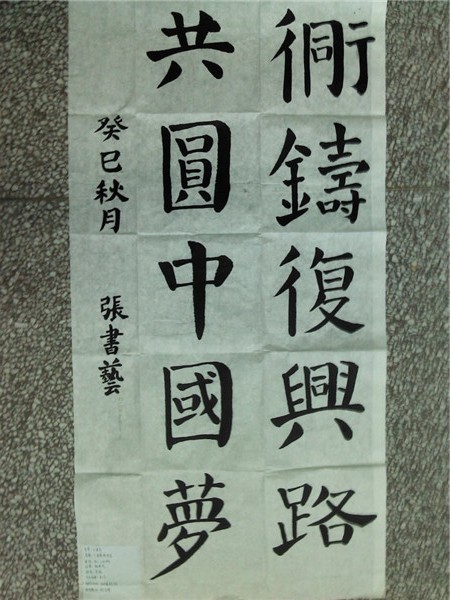 衕鑄復興路
共圓中國夢
癸巳秋月
張書藝